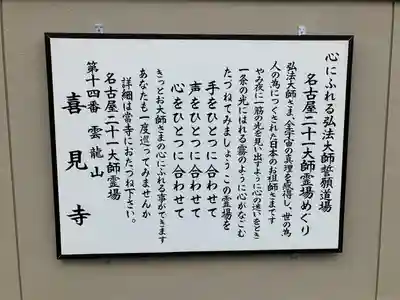 心にふれる弘法大師誓願道場
名古屋二十一大師霊場めぐり
弘法大師さま、全宇宙の真理を感得し、世の為
人の為につくされた日本のお祖師さまです
やみ夜に一筋の光を見い出すように心の迷いをとき
一条の光にはれる霧のように心がなごむ
たづねてみましょうこの霊場を
手をひとつに合わせて
声をひとつに合わせて
心をひとつに合わせて
きっとお大師さまの心にふれる事ができます
あなたも一度巡ってみませんか
詳細は当寺にお尋ね下さい。
名古屋二十一大師霊場
第十四番 雲龍山
喜見寺